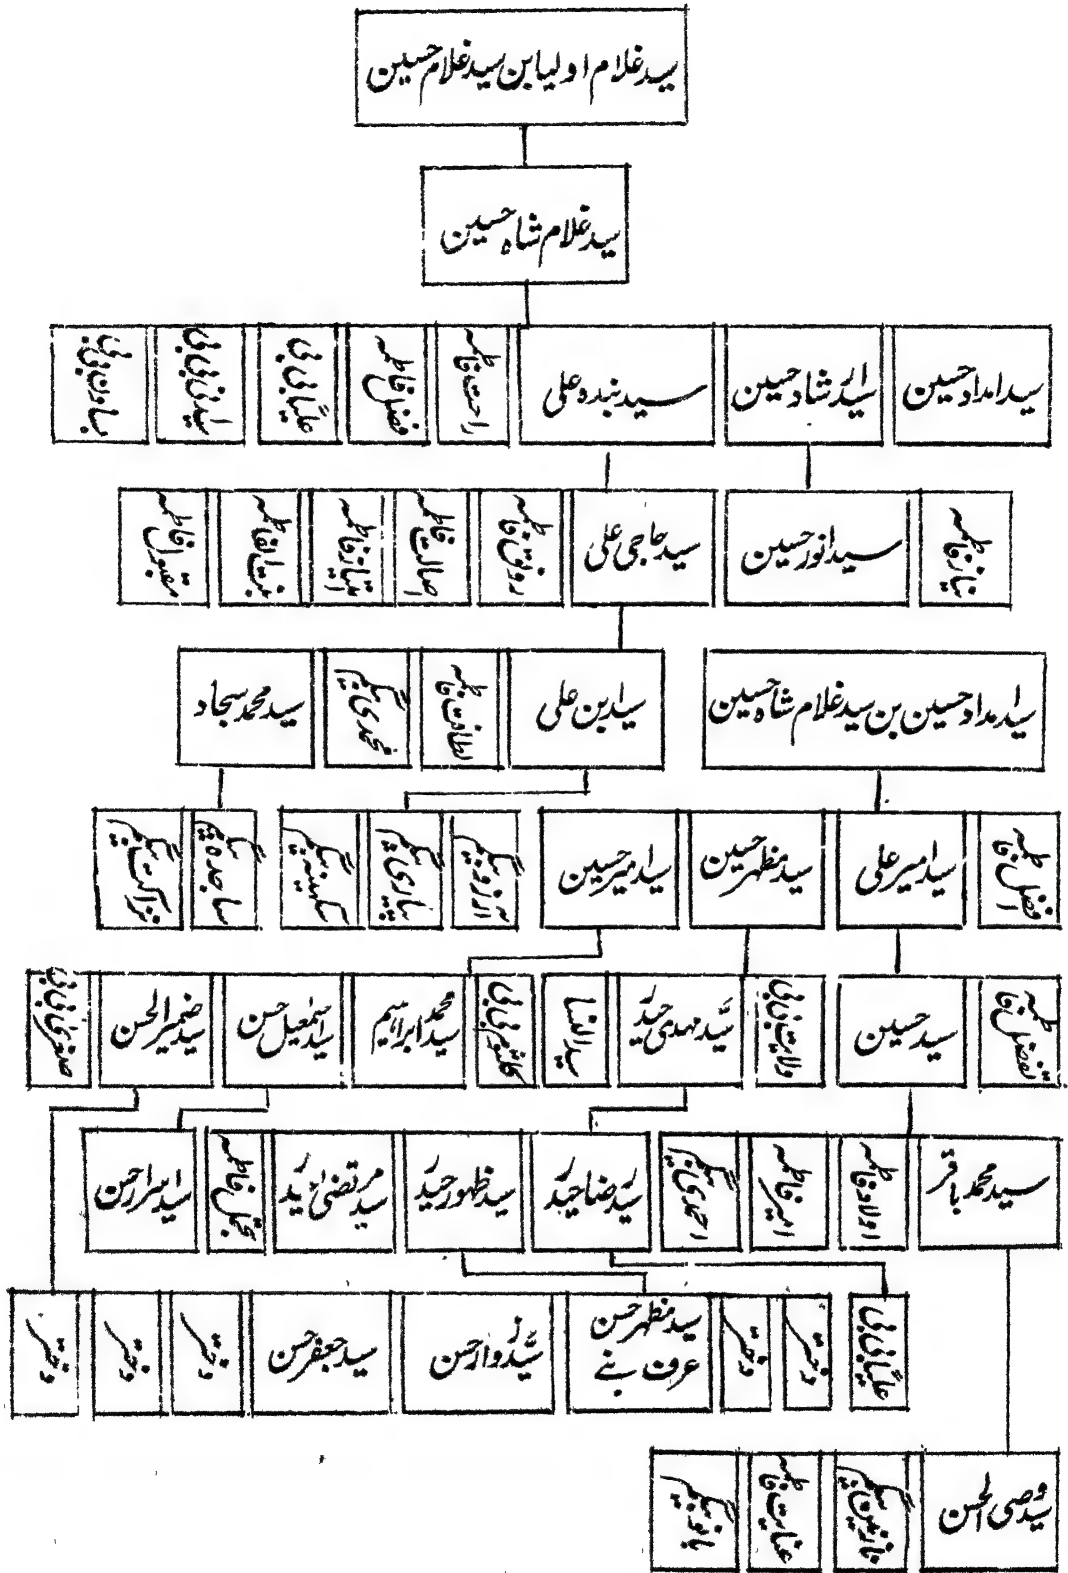 سید غلام اولیا بن سید غلام حسین
سید غلام شاہ حسین
سید امداد حسین
سید ارشاد حسین
سید بندہ علی
راحت فاطمہ
فضل فاطمہ
علیّا بی بی
سیدانی بی بی
بساون بی بی
نیاز فاطمہ
سید انور حسین
سید حاجی علی
رونق فاطمہ
اصالت فاطمہ
امتیاز فاطمہ
بنت الفاطمہ
مقبول فاطمہ
سید امداد حسین بن سید غلام شاہ حسین
سید ابن علی
لطافت فاطمہ
محمدی بیگم
سید محمد سجاد
افضل فاطمہ
سید امیر علی
سید مظہر حسین
سید امیر حسین
آرزو بیگم
پیاری بیگم
سکینہ بیگم
ساجدہ بیگم
نزاکت بیگم
تفضل فاطمہ
سید حسین
ولایت بی بی
سیّد مہدی حیدر
سید النسا
کلثوم بی بی
سید محمد ابراہیم
سید اسمٰعیل حسن
سید ضمیر الحسن
صغریٰ بی بی
سید محمد باقر
اولاد فاطمہ
امیر فاطمہ
احمدی بیگم
سید رضا حیدر
سید ظہور حیدر
سید مرتضی حیدر
تجمل فاطمہ
سید اسرار حسن
علیّا بی بی
دختر
دختر
سید مظہر حسن
عرف بنے
سیّد زوار حسن
سید جعفر حسن
دختر
دختر
دختر
سید وصی الحسن
نازنین بیگم
عنایت فاطمہ
بانو بیگم